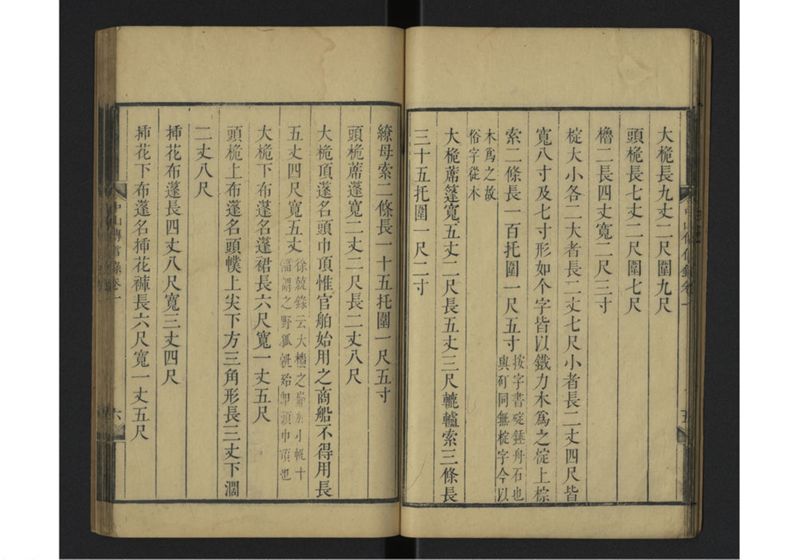 大桅長九丈二尺圍九尺
頭桅長七丈二尺圍七尺
櫓二長四丈寬二尺三寸
椗大小各二大者長二丈七尺小者長二丈四尺皆
寬八寸及七寸形如个字皆以鐵力木爲之椗上棕
索二條長一百托圍一尺五寸
按字書碇錘舟石也
與矴同無椗字今以
木爲之故
俗字從木
大桅蓆篷寬五丈二尺長五丈三尺轆轤索三條長
三十五托圍一尺二寸
繚母索二條長一十五托圍一尺五寸
頭桅蓆蓬寬二丈二尺長二丈八尺
大桅頂蓬名頭巾頂惟官舶始用之商船不得用長
五丈四尺寬五丈
徐兢錄云大檣之巓
加小帆十
幅謂之野狐帆殆卽頭巾頂也
大桅下布蓬名蓬裙長六尺寬一丈五尺
頭桅上布蓬名頭幞上尖下方三角形長三丈下濶
二丈八尺
揷花布蓬長四丈八尺寬三丈四尺
揷花下布蓬名揷花褲長六尺寬一丈五尺
中山傳信錄卷一
六